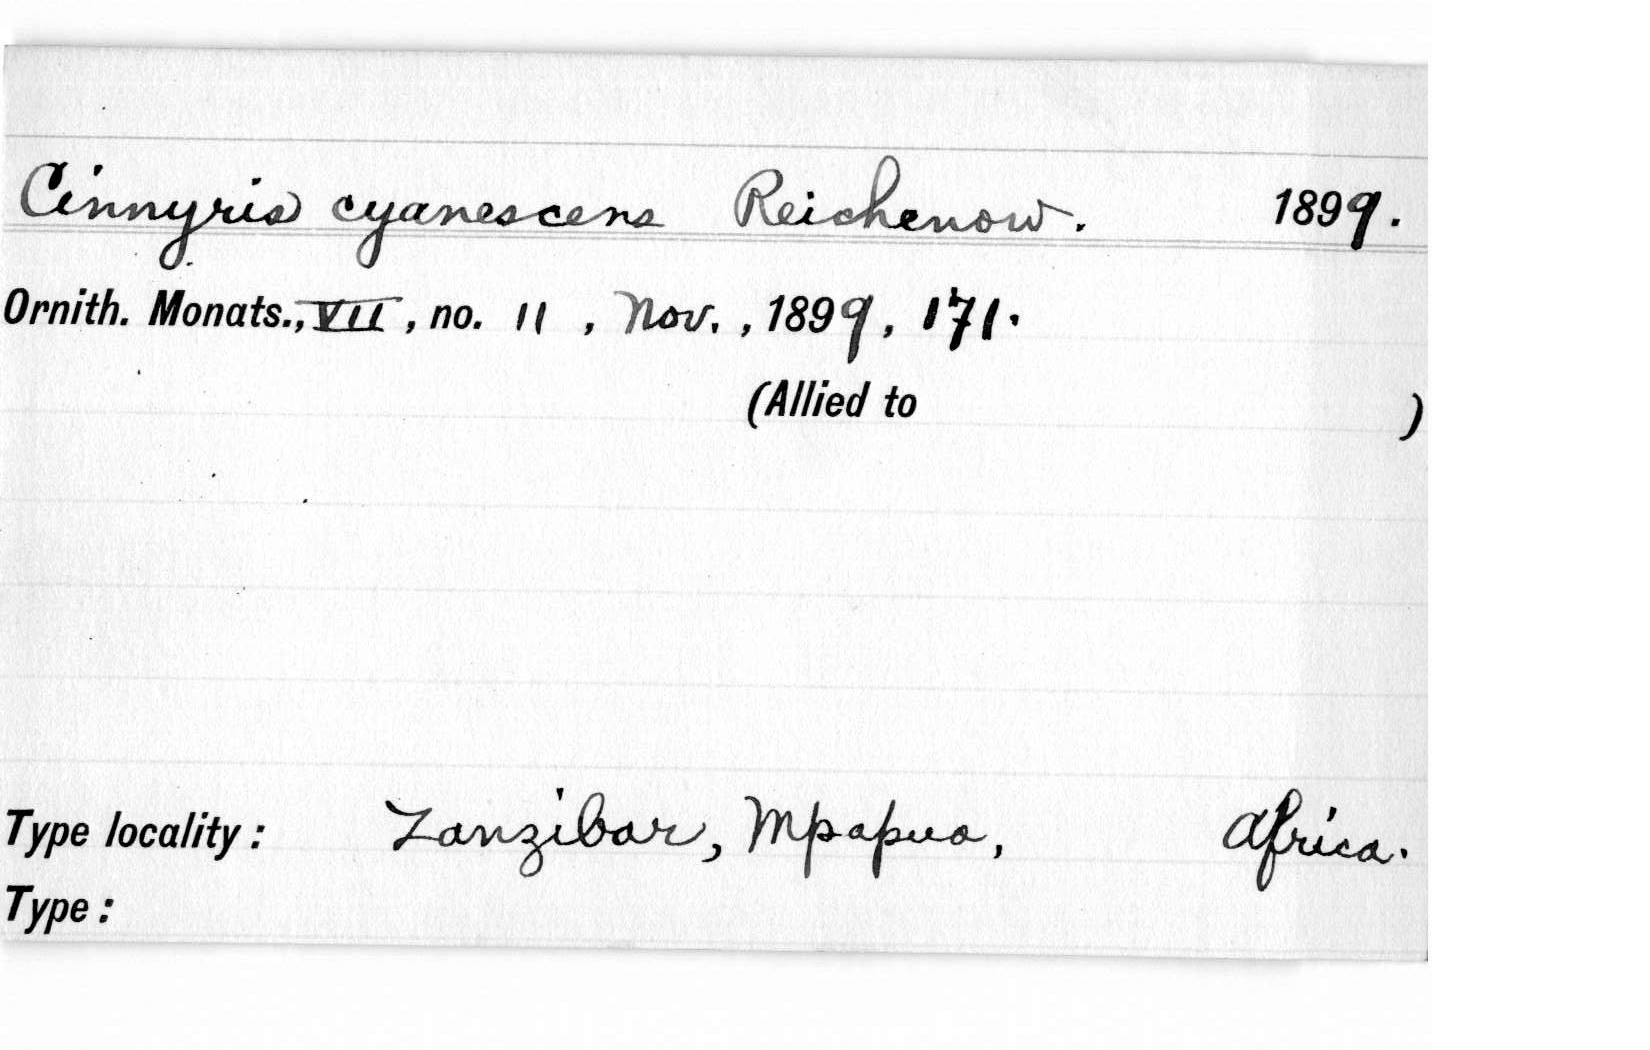 Cinnyris cyanescens Reichenow. 1899.
Ornith. Monats., VII, no. 11, Nov., 1899, 171.
(Allied to )
Type locality: Zanzibar, Mpapua, Africa.
Type: